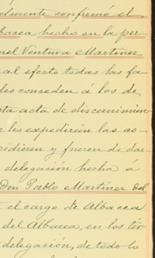 elmente confirmó el
bacea hecho en la per
uel Ventura Martinez
al efecto todas las fa
des conceden á los de
sta acta de discernimien
les expedirán las co
pidieren y fueren de dar
delegación hecha á
Don Pablo Martinez del
el cargo de Albacea
del Albacea, en los tér
delegación, de todo lo